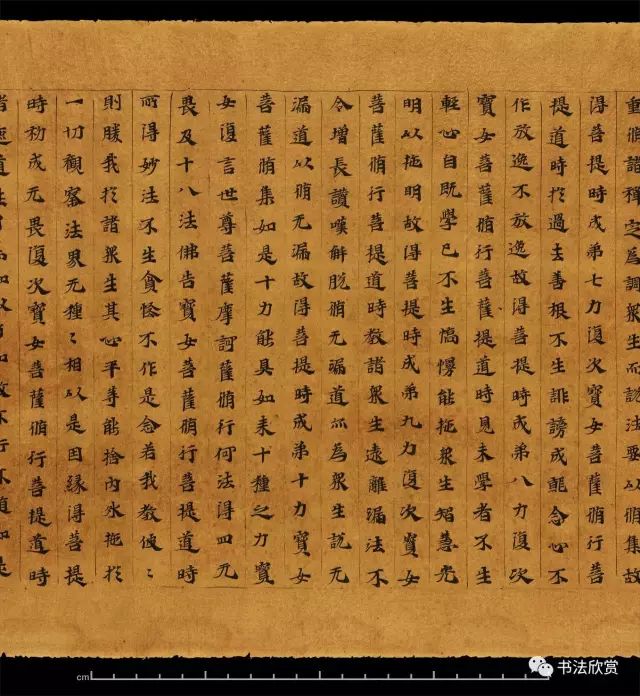 重脩諸禪定為調眾生而説法要以脩集故
得菩提時成弟七力復次寶女菩薩脩行菩
提道時於過去善根不生誹謗成就念心不
作放逸不放逸故得菩提時成弟八力復次
寶女菩薩脩行菩薩提道時見未學者不生
輕心自既學已不生憍慢能施眾生智慧光
明以施明故得菩提時成弟九力復次寶女
菩薩脩行菩提道時教諸眾生遠離漏法不
令增長讚嘆解脫脩无漏道亦為眾生説无
漏道以脩无漏故得菩提時成弟十力寶女
菩薩脩集如是十力能具如來十種之力寶
女復言世尊菩薩摩訶薩脩行何法得四无
畏及十八法佛告寶女菩薩脩行菩提道時
所得妙法不生貪悋不作是念若我教彼〻
則勝我於諸眾生其心平等能捨內外施於
一切觀察法界无種〻相以是因緣得菩提
時初成无畏復次寶女菩薩脩行菩提道時
cm
书法欣赏